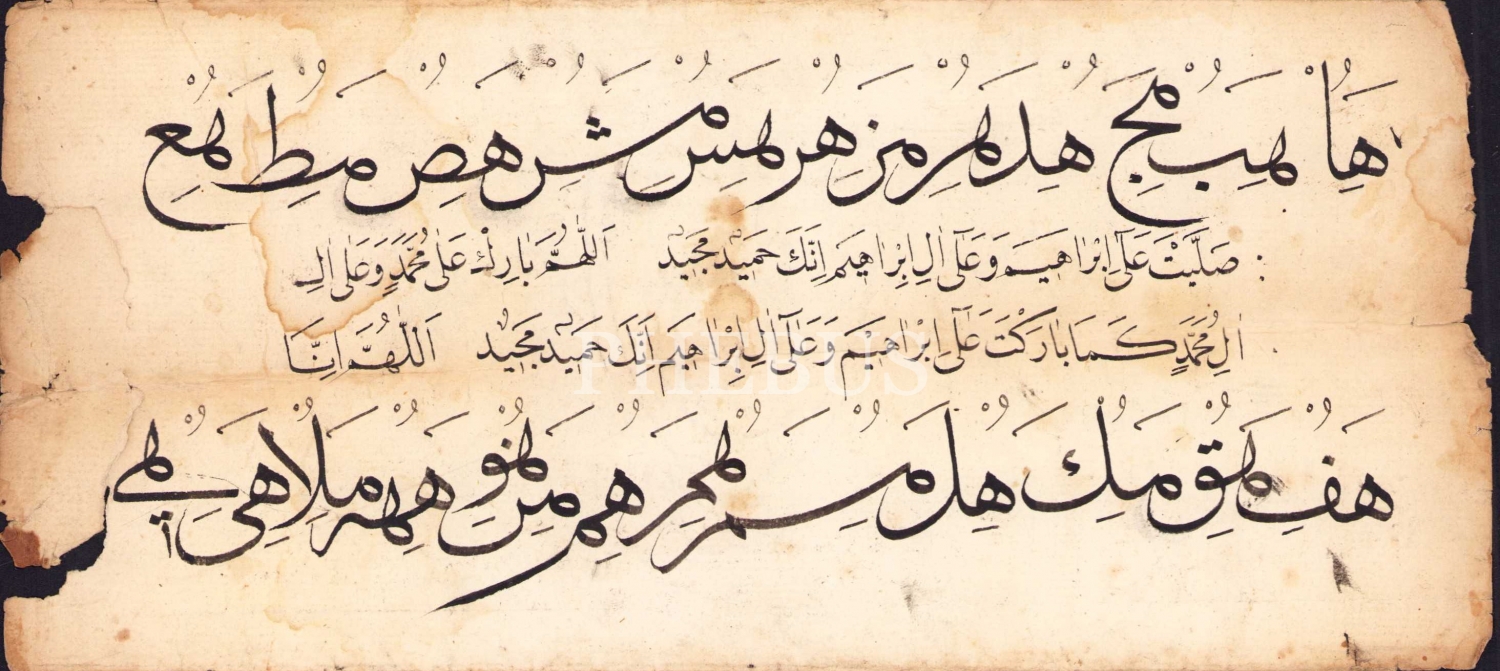 هَا لهب مج هد لهر مز هر لهس مش هص مط لهع
صَلَّيْتَ عَلٰٓى اِبْرٰاهيمَ وَعَلٰٓى اٰلِ اِبْرٰاهيمَ اِنَّكَ حَميدٌ مَجيدٌ اَللّٰهُمَّ بَارِكْ عَلٰى مُحَمَّدٍ وَعَلٰى اٰلِ
اٰلِ مُحَمَّدٍ كَمَا بَارَكْتَ عَلٰٓى اِبْرٰاهيمَ وَعَلٰٓى اٰلِ اِبْرٰاهيمَ اِنَّكَ حَميدٌ مَجيدٌ اَللّٰهُمَّ اِنَّا
PHEBUS
هف لهق مك هل هم من لهو هه ملا هى لهى